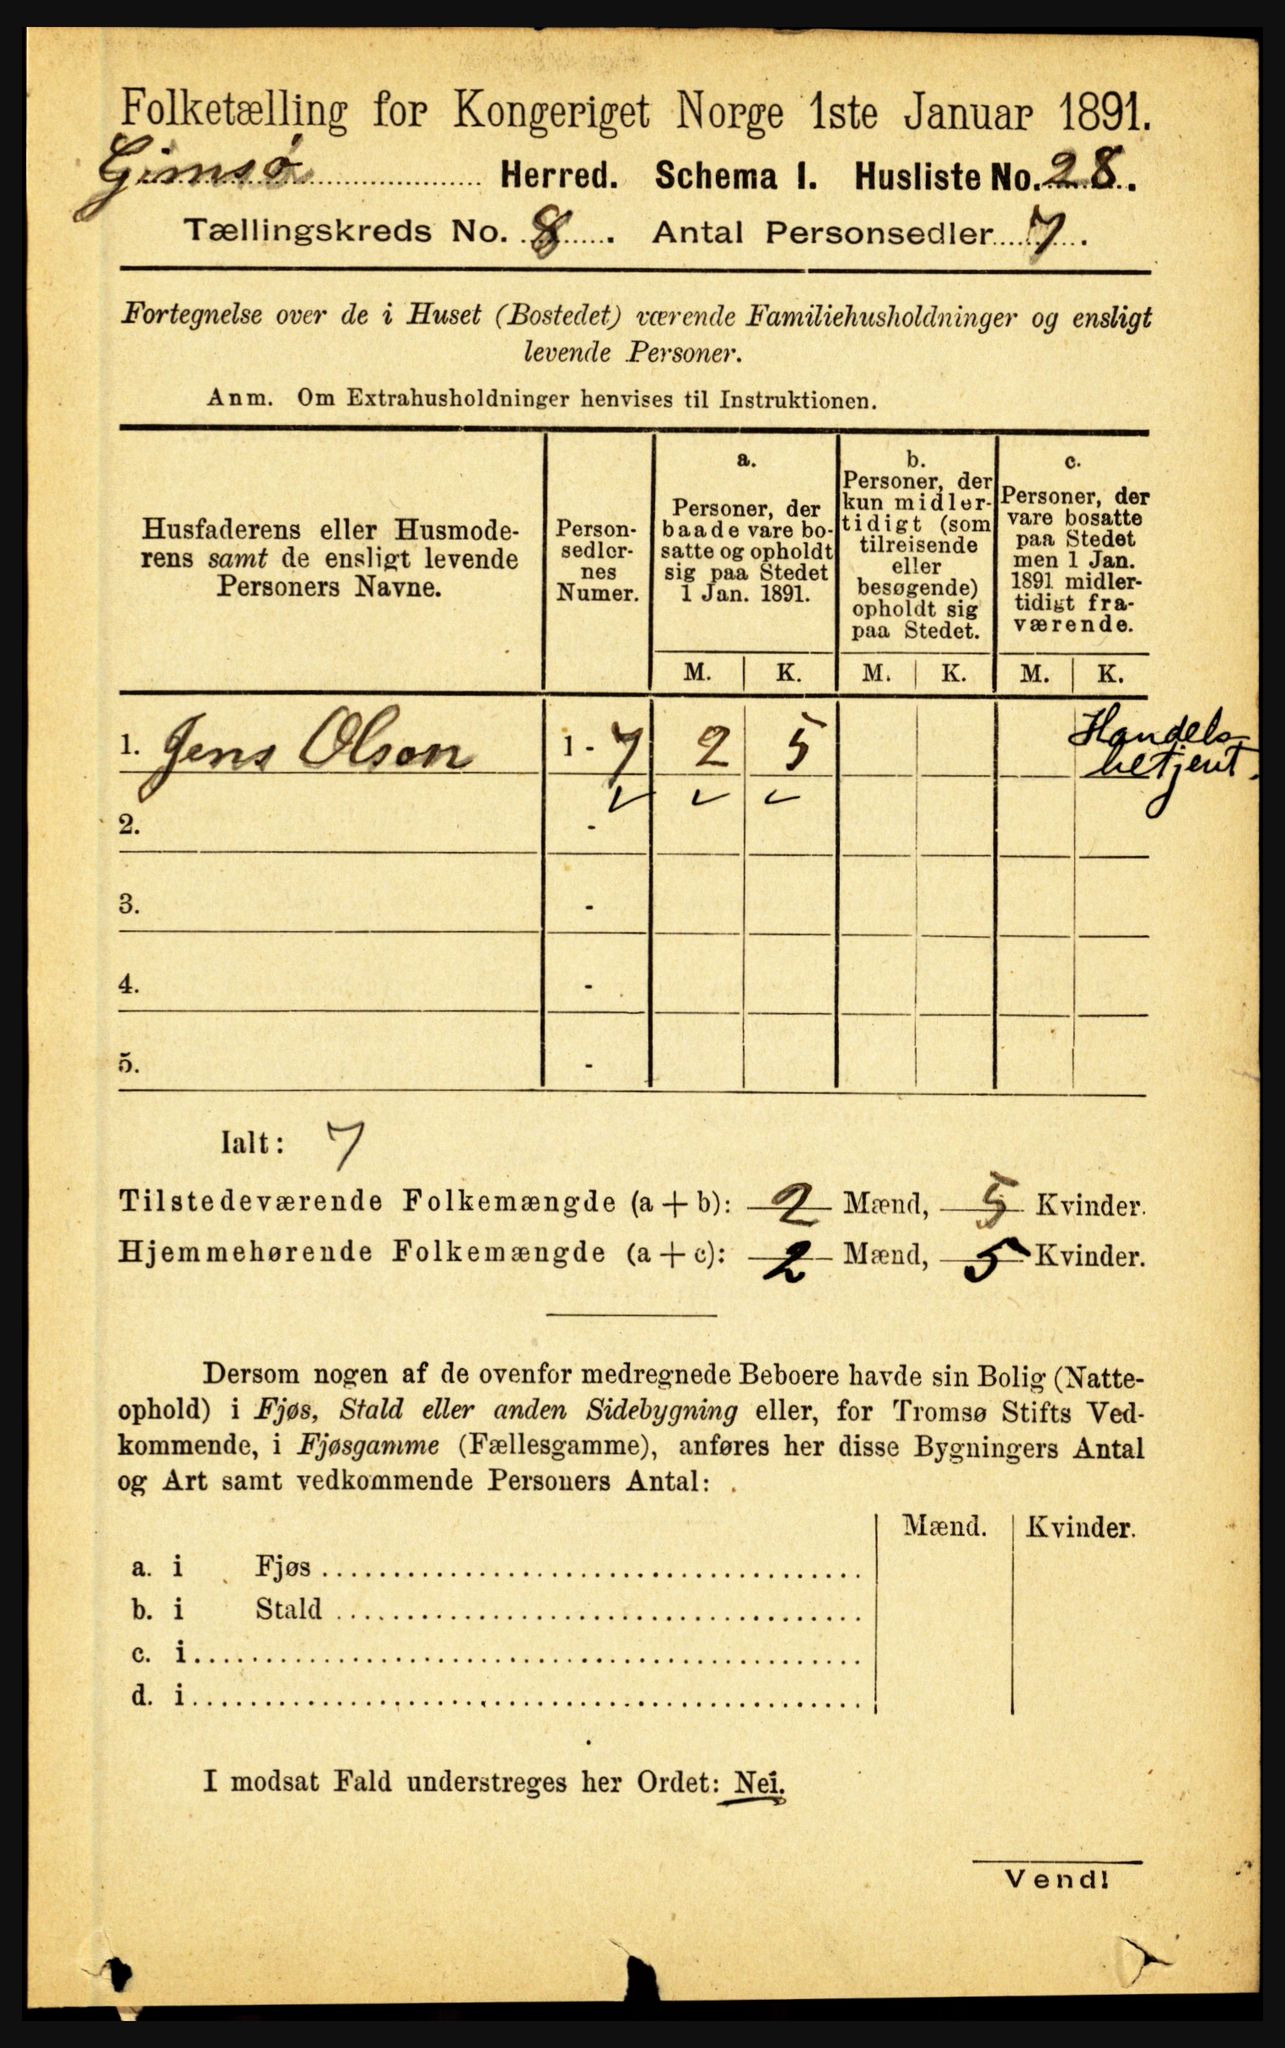 Folketælling for Kongeriget Norge 1ste Januar 1891.
Gimsø Herred. Schema I. Husliste No. 28.
Tællingskreds No. 8. Antal Personsedler 7.
Fortegnelse over de i Huset (Bostedet) værende Familiehusholdninger og ensligt
levende Personer.
Anm. Om Extrahusholdninger henvises til Instruktionen.
Husfaderens eller Husmode-
rens samt de ensligt levende
Personers Navne.
Person-
sedler-
nes
Numer.
a.
Personer, der
baade vare bo-
satte og opholdt
sig paa Stedet
1 Jan. 1891.
b.
Personer, der
kun midler-
tidigt (som
tilreisende
eller
besøgende)
opholdt sig
paa Stedet.
c.
Personer, der
vare bosatte
paa Stedet
men 1 Jan.
1891 midler-
tidigt fra-
værende.
M. K. M. K. M. K.
1. Jens Olsen 1 - 7 2 5 Handels-
betjent.
2. -
3. -
4. -
5. -
Ialt: 7
Tilstedeværende Folkemængde (a + b): 2 Mænd, 5 Kvinder.
Hjemmehørende Folkemængde (a + c): 2 Mænd, 5 Kvinder.
Dersom nogen af de ovenfor medregnede Beboere havde sin Bolig (Natte-
ophold) i Fjøs, Stald eller anden Sidebygning eller, for Tromsø Stifts Ved-
kommende, i Fjøsgamme (Fællesgamme), anføres her disse Bygningers Antal
og Art samt vedkommende Personers Antal:
Mænd. Kvinder.
a. i Fjøs
b. i Stald
c. i
d. i
I modsat Fald understreges her Ordet: Nei.
Vend!